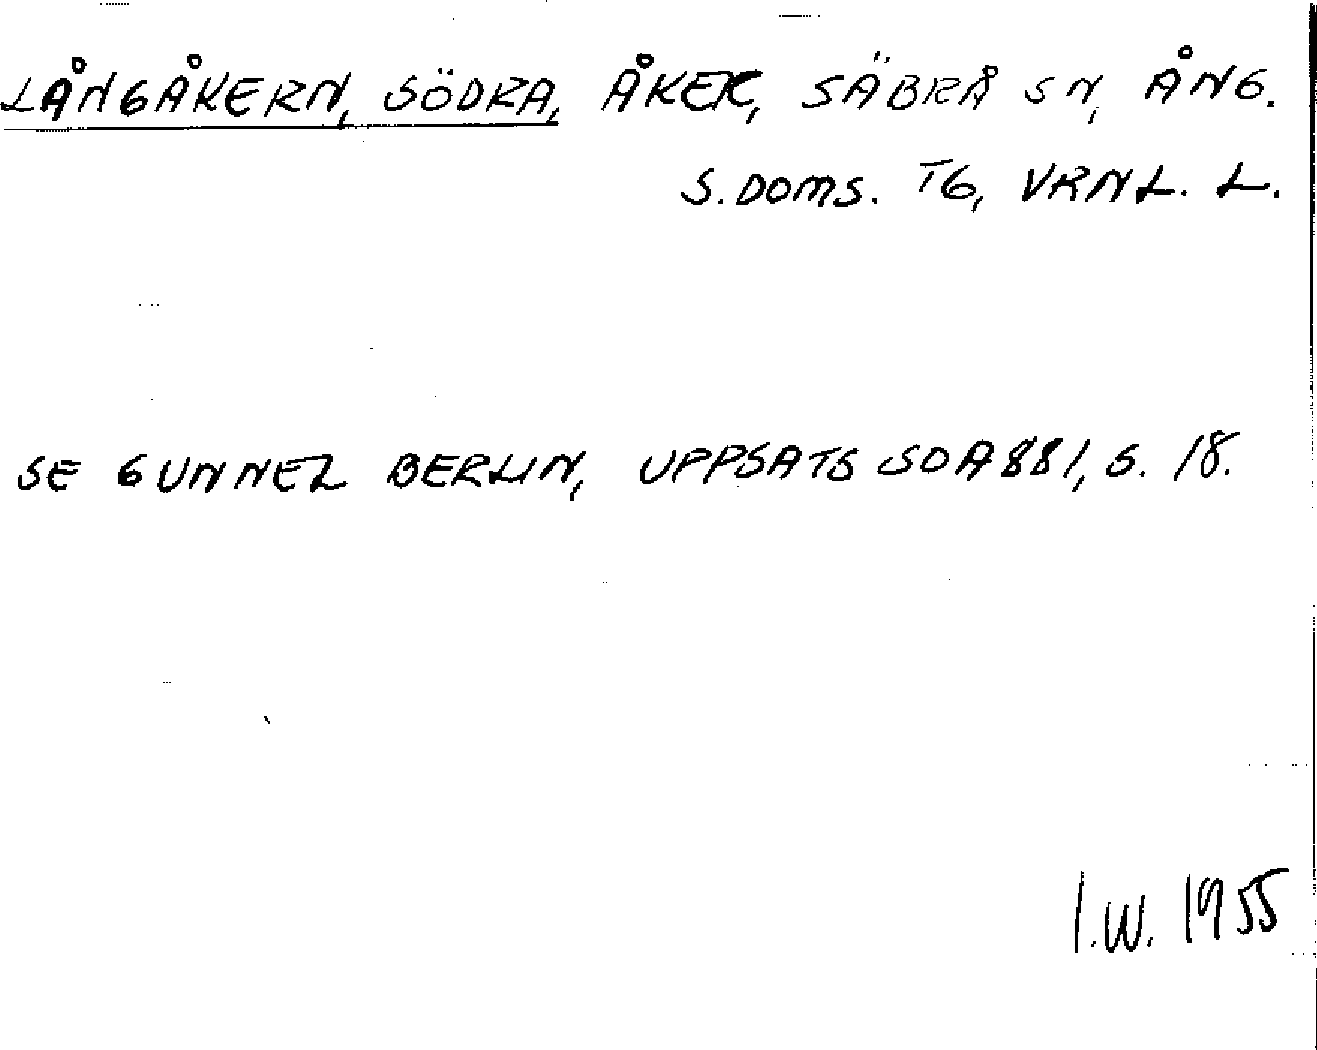 LÅNGÅKERN, SÖDRA, ÅKER, SÄBRÅ SN, ÅNG.
S. DOMS. TG, VRNL. L.
SE GUNNEL BERLIN, UPPSATS SOA 881, S. 18.
I.W. 1955